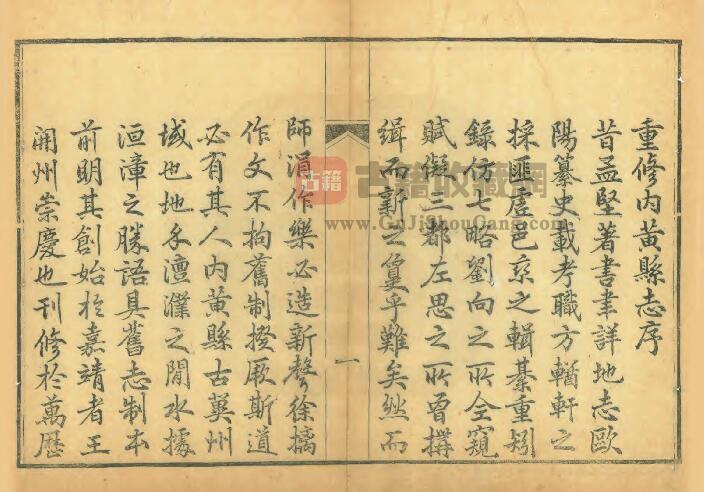 重修内黃縣志序
昔孟堅著書聿詳地志歐
陽纂史載考職方輶軒之
採匪虛邑乘之輯綦重矧
錄仿七略劉向之所全窺
賦儗三都左思之所曾撰
緝而新之夐乎難矣然而
一
師涓作樂必造新聲徐摛
作文不拘舊制揆厥斯道
必有其人内黃縣古兾州
域也地介澶濮之間水據
洹漳之勝語具舊志制本
前明其創始於嘉靖者王
開州崇慶也刊修於萬歷
古籍
古籍收藏網
www.GuJiShouCang.com